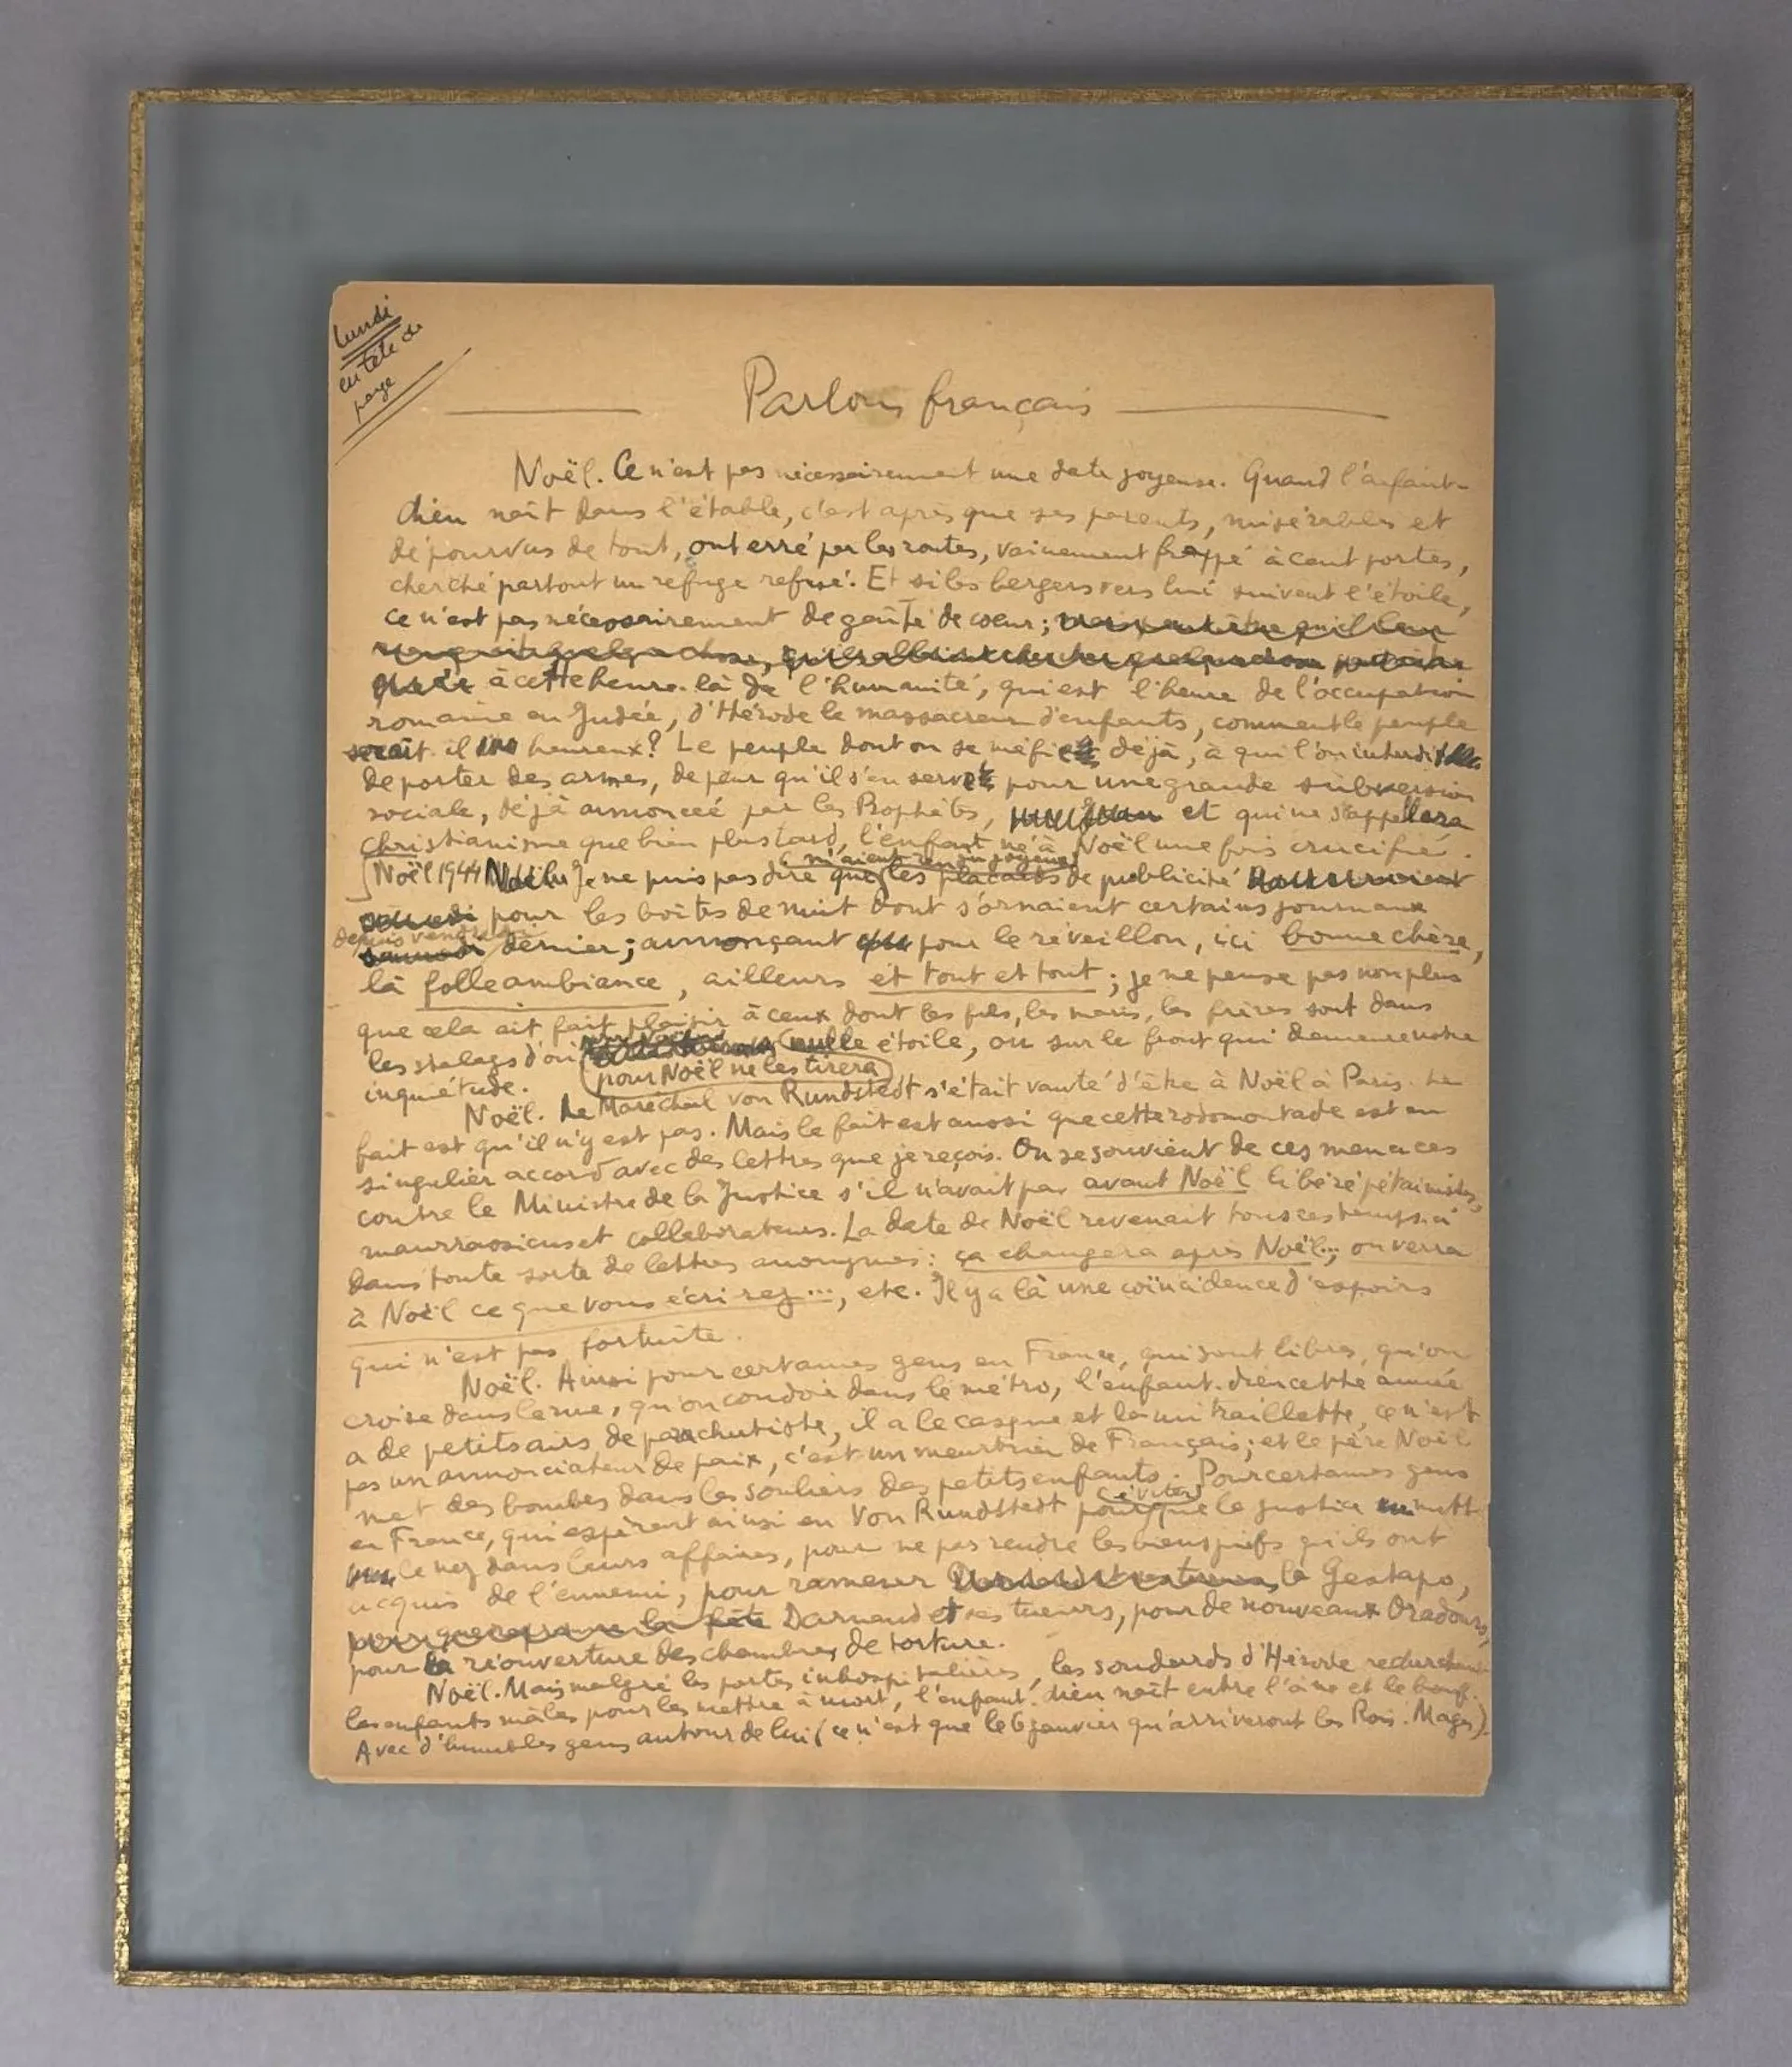 Lundi
en tête de
page
Parlons français
Noël. Ce n'est pas nécessairement une date joyeuse. Quand l'enfant-
dieu naît dans l'étable, c'est après que ses parents, misérables et
dépourvus de tout, ont erré par les routes, vainement frappé à cent portes,
cherché partout un refuge refusé. Et si les bergers vers lui suivent l'étoile,
ce n'est pas nécessairement de gaîté de cœur;
à cette heure-là de l'humanité, qui est l'heure de l'occupation
romaine en Judée, d'Hérode le massacreur d'enfants, comment le peuple
serait-il heureux? Le peuple dont on se méfie déjà, à qui l'on interdit
de porter des armes, de peur qu'il s'en serve pour une grande subversion
sociale, déjà annoncée par les Prophètes, et qui ne s'appellera
christianisme que bien plus tard, l'enfant né à Noël une fois crucifié.
m'aient rendu joyeux
Noël 1944 Je ne puis pas dire que les placards de publicité
pour les boîtes de nuit dont s'ornaient certains journaux
depuis vendredi
dernier; annonçant pour le réveillon, ici bonne chère,
là folle ambiance, ailleurs et tout et tout; je ne pense pas non plus
que cela ait fait plaisir à ceux dont les fils, les maris, les frères sont dans
les stalags d'où nulle étoile, ou sur le front qui demeure notre
pour Noël ne les tirera
inquiétude.
Noël. Le Maréchal von Rundstedt s'était vanté d'être à Noël à Paris. Le
fait est qu'il n'y est pas. Mais le fait est aussi que cette rodomontade est en
singulier accord avec des lettres que je reçois. On se souvient de ces menaces
contre le Ministre de la Justice s'il n'avait pas avant Noël libéré pétainistes,
maurrassiens et collaborateurs. La date de Noël revenait tous ces temps-ci
dans toute sorte de lettres anonymes: ça changera après Noël..., on verra
à Noël ce que vous écrirez..., etc. Il y a là une coïncidence d'espoirs
qui n'est pas fortuite.
Noël. Ainsi pour certaines gens en France, qui sont libres, qu'on
croise dans la rue, qu'on coudoie dans le métro, l'enfant-dieu cette année
a de petits airs de parachutiste, il a le casque et la mitraillette, ce n'est
pas un annonciateur de paix, c'est un meurtrier de Français; et le père Noël
met des bombes dans les souliers des petits enfants. Pour certaines gens
en France, qui espèrent ainsi en Von Rundstedt pour éviter que la justice mette
le nez dans leurs affaires, pour ne pas rendre les biens juifs qu'ils ont
acquis de l'ennemi, pour ramener la Gestapo,
Darnand et ses tueurs, pour de nouveaux Oradours,
pour la réouverture des chambres de torture.
Noël. Mais malgré les portes inhospitalières, les soudards d'Hérode recherchant
les enfants mâles pour les mettre à mort, l'enfant-dieu naît entre l'âne et le bœuf.
Avec d'humbles gens autour de lui (ce n'est que le 6 janvier qu'arriveront les Rois-Mages).